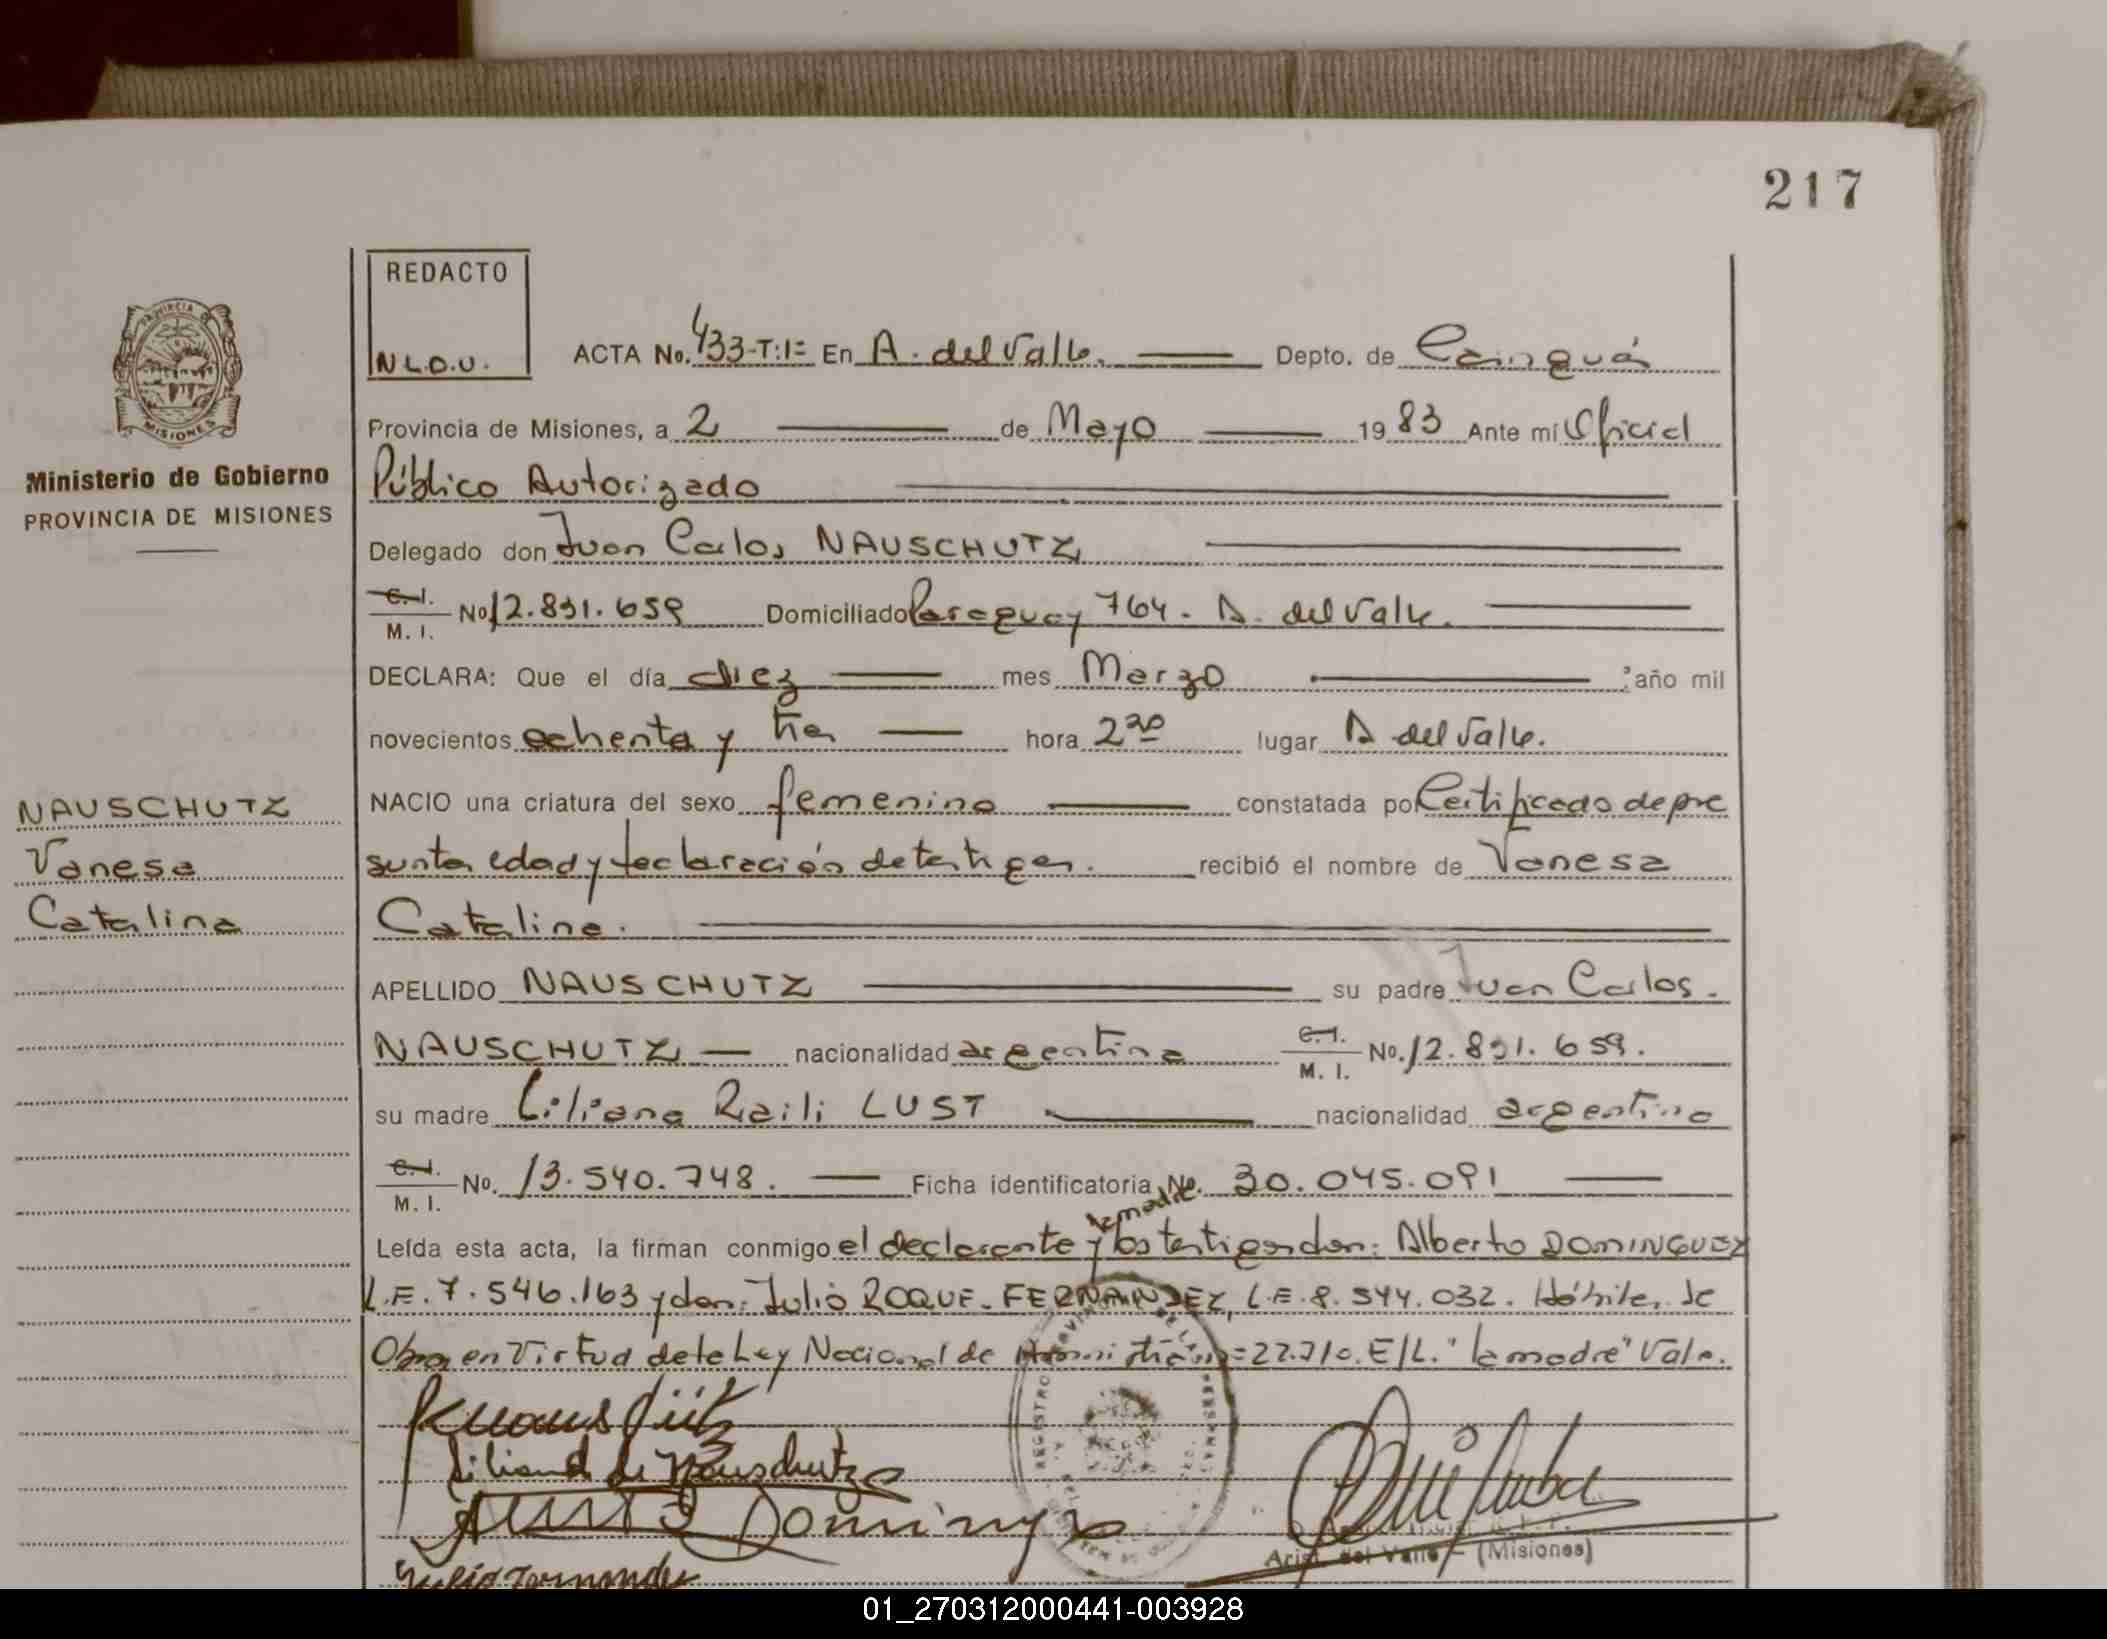 217
REDACTO
N.L.O.U.
ACTA No. 433-T:I= En A. del Valle. Depto. de Cainguás
Provincia de Misiones, a 2 de Mayo 1983 Ante mí Oficial
Ministerio de Gobierno
PROVINCIA DE MISIONES
Público Autorizado
Delegado don Juan Carlos NAUSCHUTZ
C.I. M. I. No 12.891.659 Domiciliado Paraguay 764. A. del Valle.
DECLARA: Que el día diez mes Marzo año mil
novecientos ochenta y tres hora 2 30 lugar A del Valle.
NAUSCHUTZ
Vanesa
Catalina
NACIO una criatura del sexo femenino constatada por Certificado de pre
sunta edad y declaración de testigos. recibió el nombre de Vanesa
Catalina.
APELLIDO NAUSCHUTZ su padre Juan Carlos.
NAUSCHUTZ nacionalidad argentina C.I. M. I. No. 12.891.659.
su madre Liliana Raili LUST nacionalidad argentina
C.I. M. I. No. 13.540.748. Ficha identificatoria No. 30.045.091
la madre
Leída esta acta, la firman conmigo el declarante y los testigos don: Alberto DOMINGUEZ
L.E. 7.546.163 y don: Julio ROQUE. FERNANDEZ, L.E. 8.544.032. Hábiles. Se
Obra en Virtud de la Ley Nacional de Nº=22.710. E/L. "la madre" Vale.
Liliana de Nauschutz
Dominguez
Julio Fernandez
Arist. del Valle - (Misiones)
01_270312000441-003928